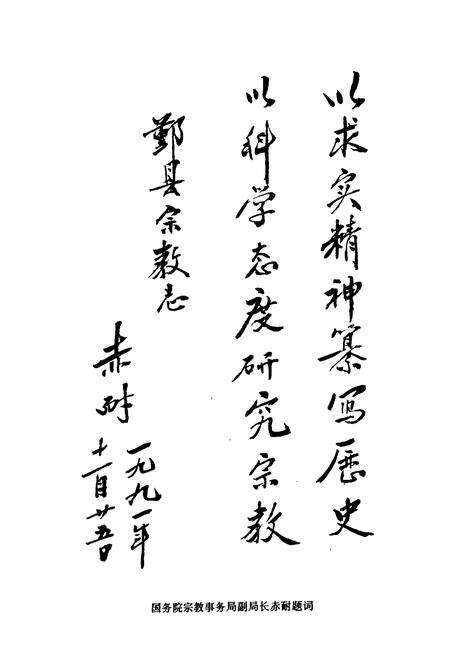 以求实精神纂写历史
以科学态度研究宗教
鄞县宗教志
赤耐
一九九一年
十一月廿五日
国务院宗教事务局副局长赤耐题词